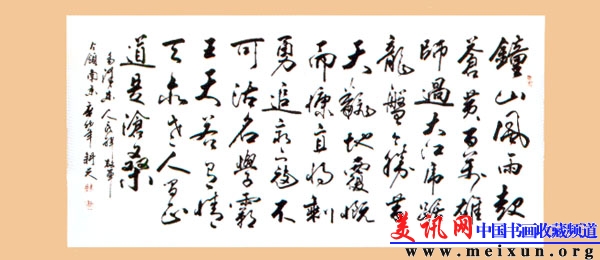 鐘山風雨起
蒼黃百萬雄
師過大江虎踞
龍盤今勝昔
天翻地覆慨
而慷宜將剩
勇追窮寇不
可沽名學霸
王天若有情
天亦老人間正
道是滄桑
毛澤東人民解放軍
占領南京
美讯网 中国书画收藏频道
www.meixun.org